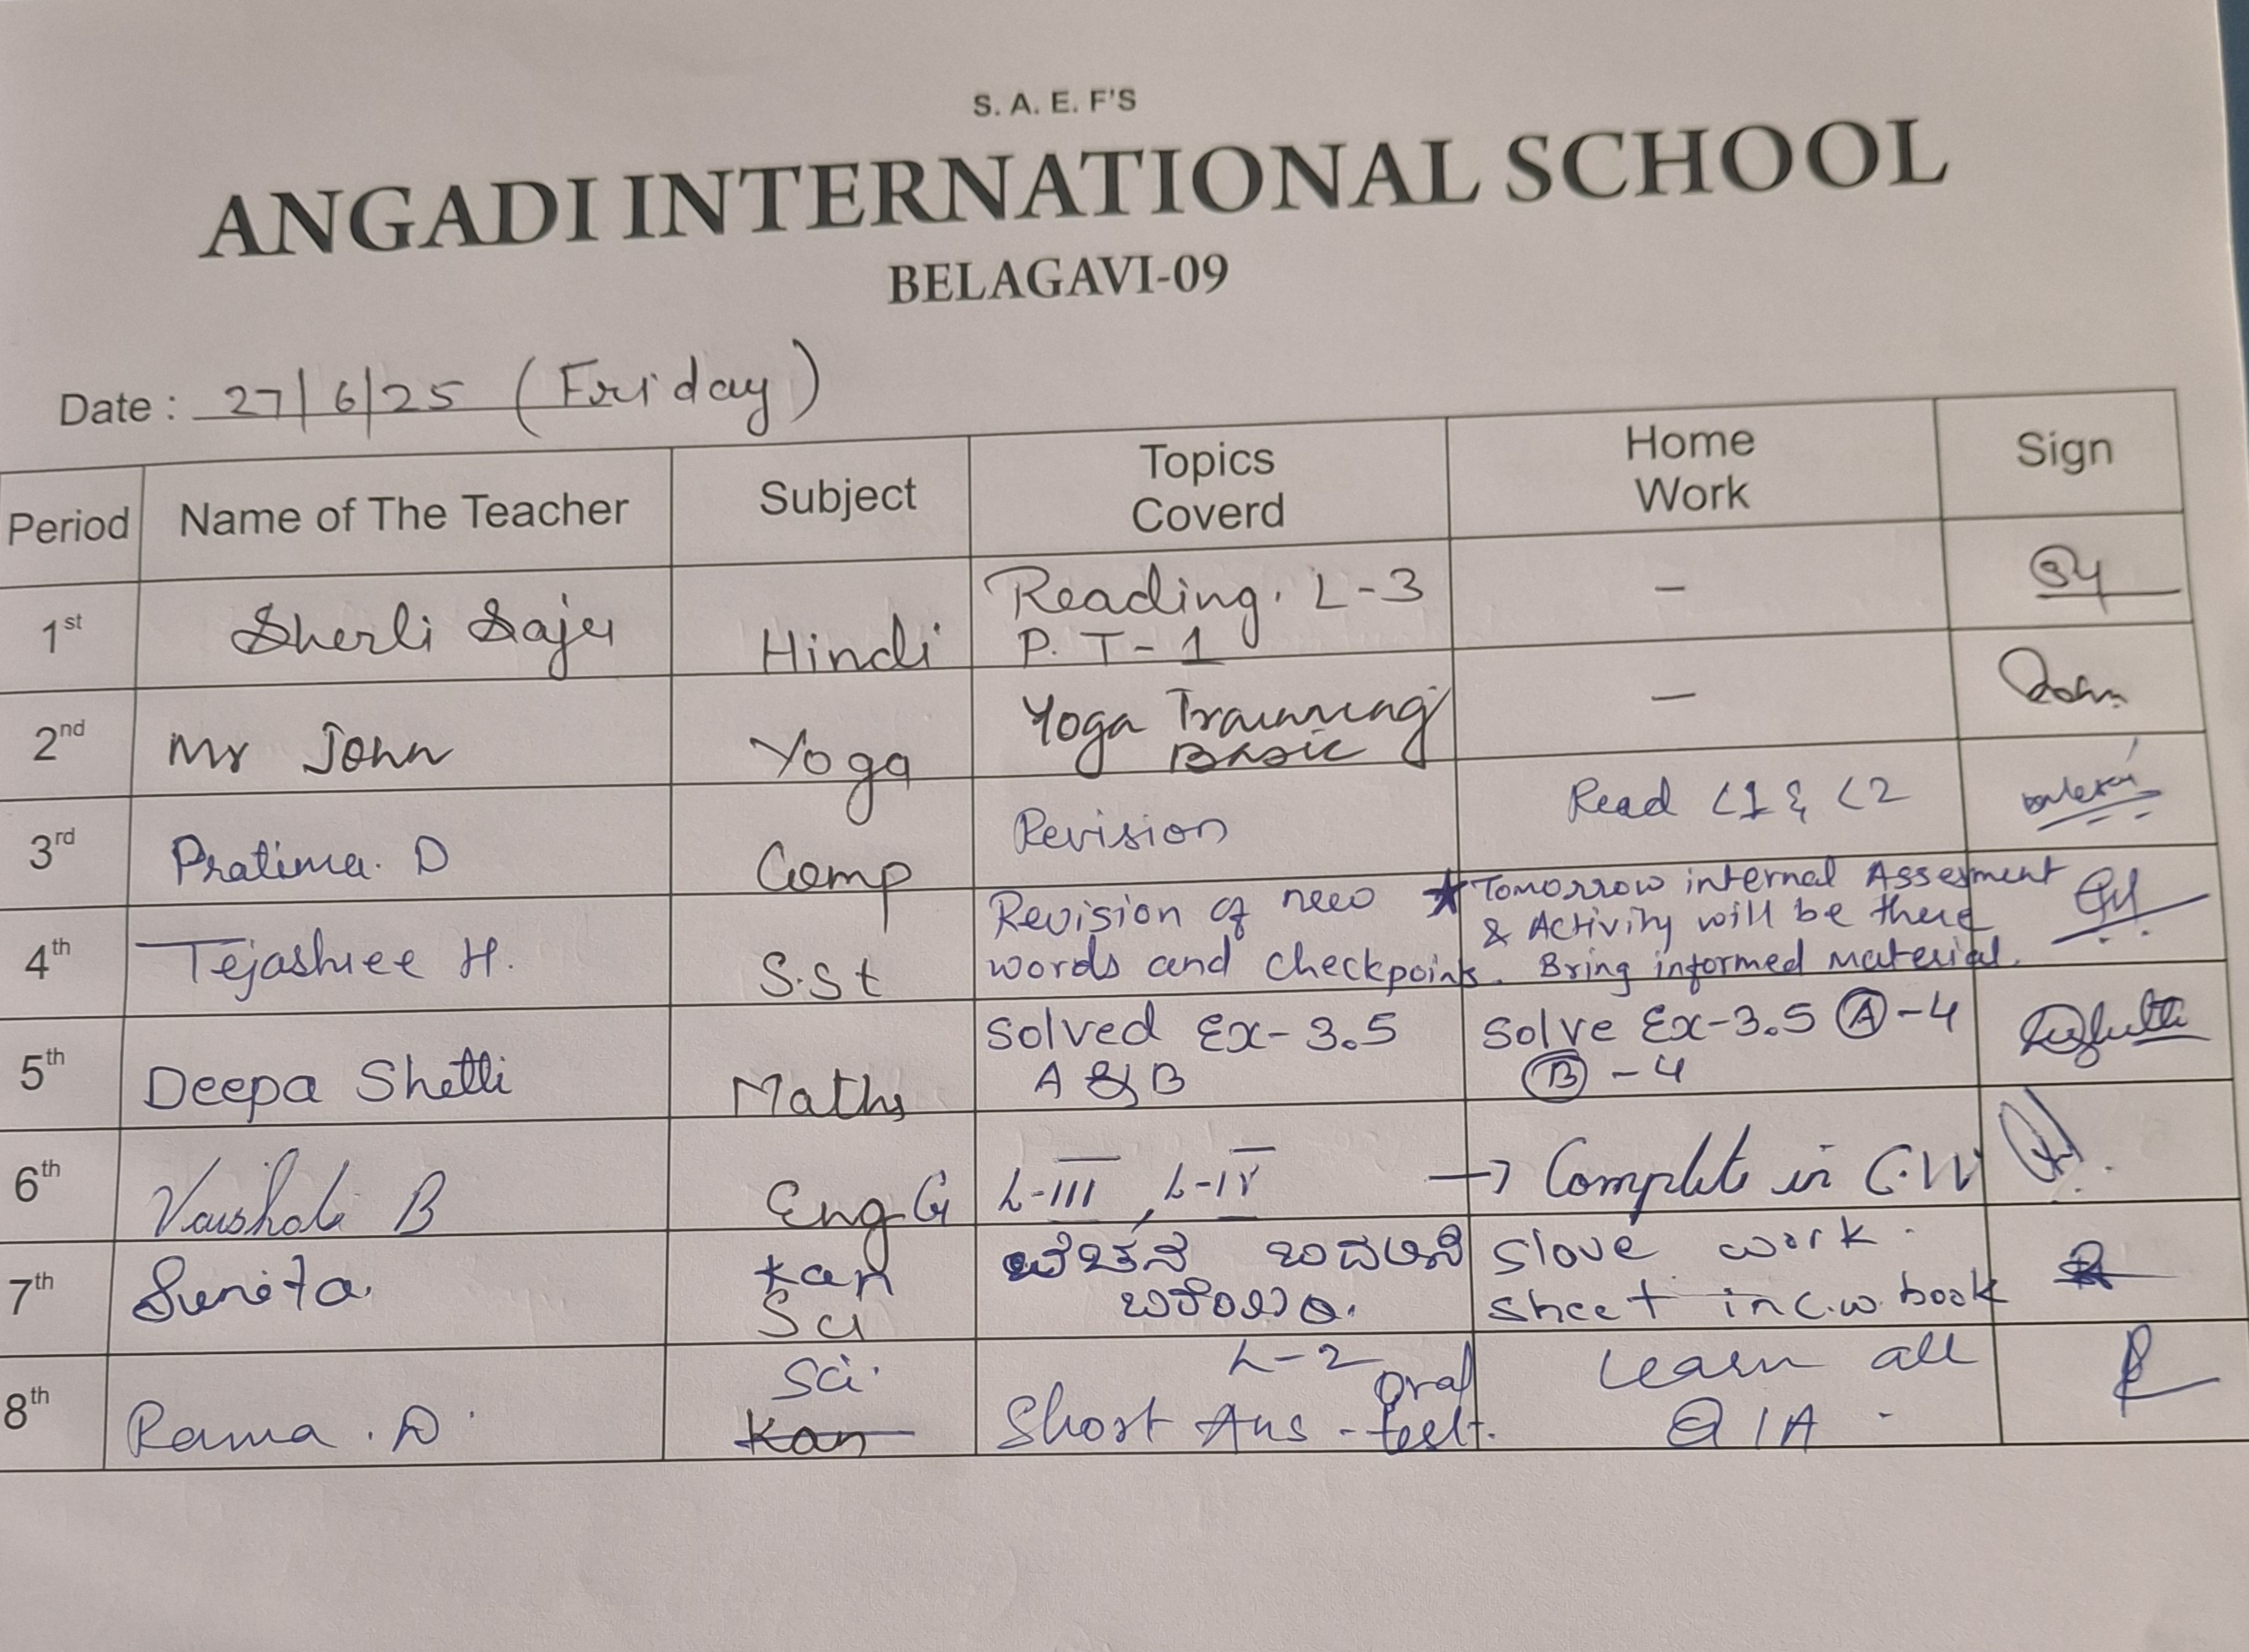 S. A. E. F'S
ANGADI INTERNATIONAL SCHOOL
BELAGAVI-09
Date : 27/6/25 (Friday)
Period Name of The Teacher Subject Topics Coverd Home Work Sign
1st Sherli Saju Hindi Reading. L-3 -
P. T-1
2nd Mr John Yoga Yoga Trainning -
Basic
3rd Pratima. D Comp Revision Read L1 & L2
4th Tejashree H. S.St Revision of new words and checkpoints. ★ Tomorrow internal Assesment
& Activity will be there
Bring informed material.
5th Deepa Shetti Maths Solved Ex-3.5 Solve Ex-3.5 A-4
A & B B-4
6th Vaishali B Eng.G L-III, L-IV → Complete in C.W
7th Sunita. Kan Slove work.
Sci sheet in c.w. book
8th Rama . D Sci. L-2 Learn all
Kan Short Ans - Oral test. Q/A -